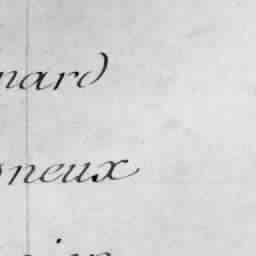 nard
neux